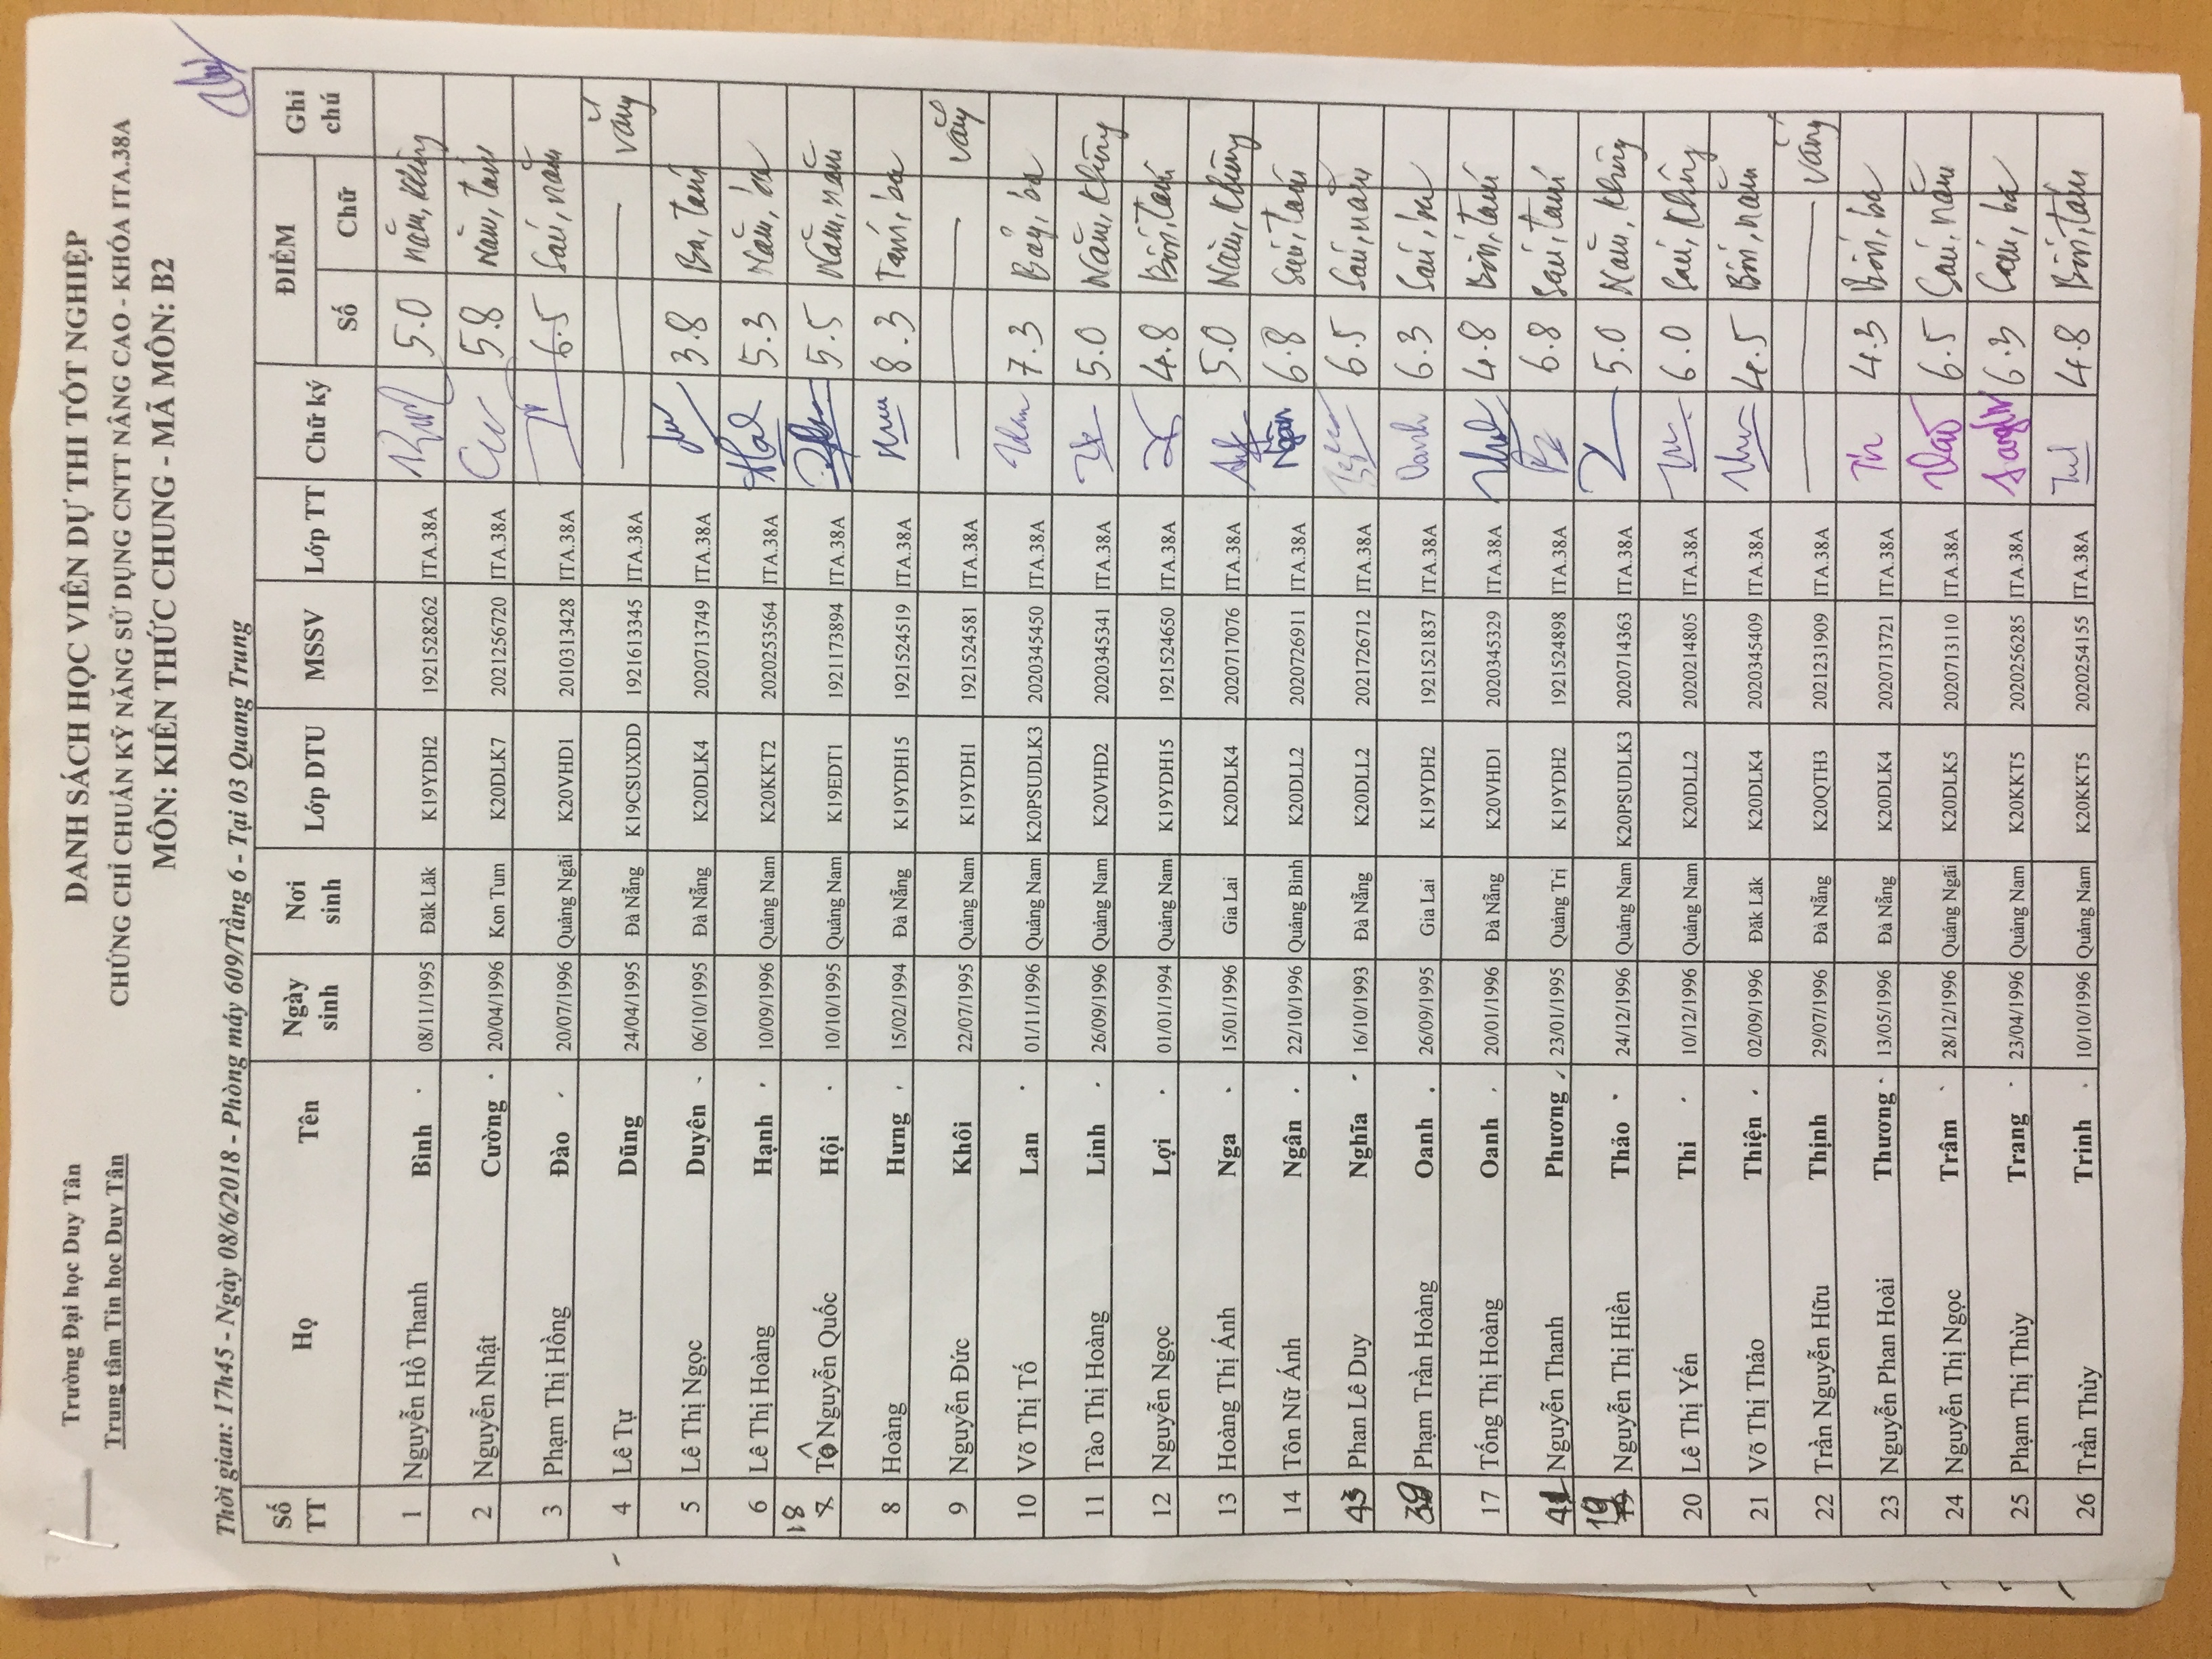 Trường Đại học Duy Tân
Trung tâm Tin học Duy Tân
DANH SÁCH HỌC VIÊN DỰ THI TỐT NGHIỆP
CHỨNG CHỈ CHUẨN KỸ NĂNG SỬ DỤNG CNTT NÂNG CAO - KHÓA ITA.38A
MÔN: KIẾN THỨC CHUNG - MÃ MÔN: B2
Thời gian: 17h45 - Ngày 08/6/2018 - Phòng máy 609/Tầng 6 - Tại 03 Quang Trung
Số TT Họ Tên Ngày sinh Nơi sinh Lớp DTU MSSV Lớp TT Chữ ký ĐIỂM Số Chữ Ghi chú
1 Nguyễn Hồ Thanh Bình 08/11/1995 Đăk Lăk K19YDH2 1921528262 ITA.38A 5.0 Năm, không
2 Nguyễn Nhật Cường 20/04/1996 Kon Tum K20DLK7 2021256720 ITA.38A 5.8 Năm, tám
3 Phạm Thị Hồng Đào 20/07/1996 Quảng Ngãi K20VHD1 2010313428 ITA.38A 6.5 Sáu, năm
4 Lê Tự Dũng 24/04/1995 Đà Nẵng K19CSUXDD 1921613345 ITA.38A vắng
5 Lê Thị Ngọc Duyên 06/10/1995 Đà Nẵng K20DLK4 2020713749 ITA.38A 3.8 Ba, tám
6 Lê Thị Hoàng Hạnh 10/09/1996 Quảng Nam K20KKT2 2020253564 ITA.38A 5.3 Năm, ba
18 7 Tô Nguyễn Quốc Hội 10/10/1995 Quảng Nam K19EDT1 1921173894 ITA.38A 5.5 Năm, năm
8 Hoàng Hưng 15/02/1994 Đà Nẵng K19YDH15 1921524519 ITA.38A 8.3 Tám, ba
9 Nguyễn Đức Khôi 22/07/1995 Quảng Nam K19YDH1 1921524581 ITA.38A vắng
10 Võ Thị Tố Lan 01/11/1996 Quảng Nam K20PSUDLK3 2020345450 ITA.38A 7.3 Bảy, ba
11 Tào Thị Hoàng Linh 26/09/1996 Quảng Nam K20VHD2 2020345341 ITA.38A 5.0 Năm, không
12 Nguyễn Ngọc Lợi 01/01/1994 Quảng Nam K19YDH15 1921524650 ITA.38A 4.8 Bốn, tám
13 Hoàng Thị Ánh Nga 15/01/1996 Gia Lai K20DLK4 2020717076 ITA.38A 5.0 Năm, không
14 Tôn Nữ Ánh Ngân 22/10/1996 Quảng Bình K20DLL2 2020726911 ITA.38A Ngân 6.8 Sáu, tám
Phan Lê Duy Nghĩa 16/10/1993 Đà Nẵng K20DLL2 2021726712 ITA.38A 6.5 Sáu, năm
Phạm Trần Hoàng Oanh 26/09/1995 Gia Lai K19YDH2 1921521837 ITA.38A Oanh 6.3 Sáu, ba
17 Tống Thị Hoàng Oanh 20/01/1996 Đà Nẵng K20VHD1 2020345329 ITA.38A 4.8 Bốn, tám
Nguyễn Thanh Phương 23/01/1995 Quảng Trị K19YDH2 1921524898 ITA.38A 6.8 Sáu, tám
19 Nguyễn Thị Hiền Thảo 24/12/1996 Quảng Nam K20PSUDLK3 2020714363 ITA.38A 5.0 Năm, không
20 Lê Thị Yến Thi 10/12/1996 Quảng Nam K20DLL2 2020214805 ITA.38A 6.0 Sáu, không
21 Võ Thị Thảo Thiện 02/09/1996 Đăk Lăk K20DLK4 2020345409 ITA.38A 4.5 Bốn, năm
22 Trần Nguyễn Hữu Thịnh 29/07/1996 Đà Nẵng K20QTH3 2021231909 ITA.38A vắng
23 Nguyễn Phan Hoài Thương 13/05/1996 Đà Nẵng K20DLK4 2020713721 ITA.38A Th 4.3 Bốn, ba
24 Nguyễn Thị Ngọc Trâm 28/12/1996 Quảng Ngãi K20DLK5 2020713110 ITA.38A 6.5 Sáu, năm
25 Phạm Thị Thùy Trang 23/04/1996 Quảng Nam K20KKT5 2020256285 ITA.38A 6.3 Sáu, ba
26 Trần Thùy Trinh 10/10/1996 Quảng Nam K20KKT5 2020254155 ITA.38A 4.8 Bốn, tám